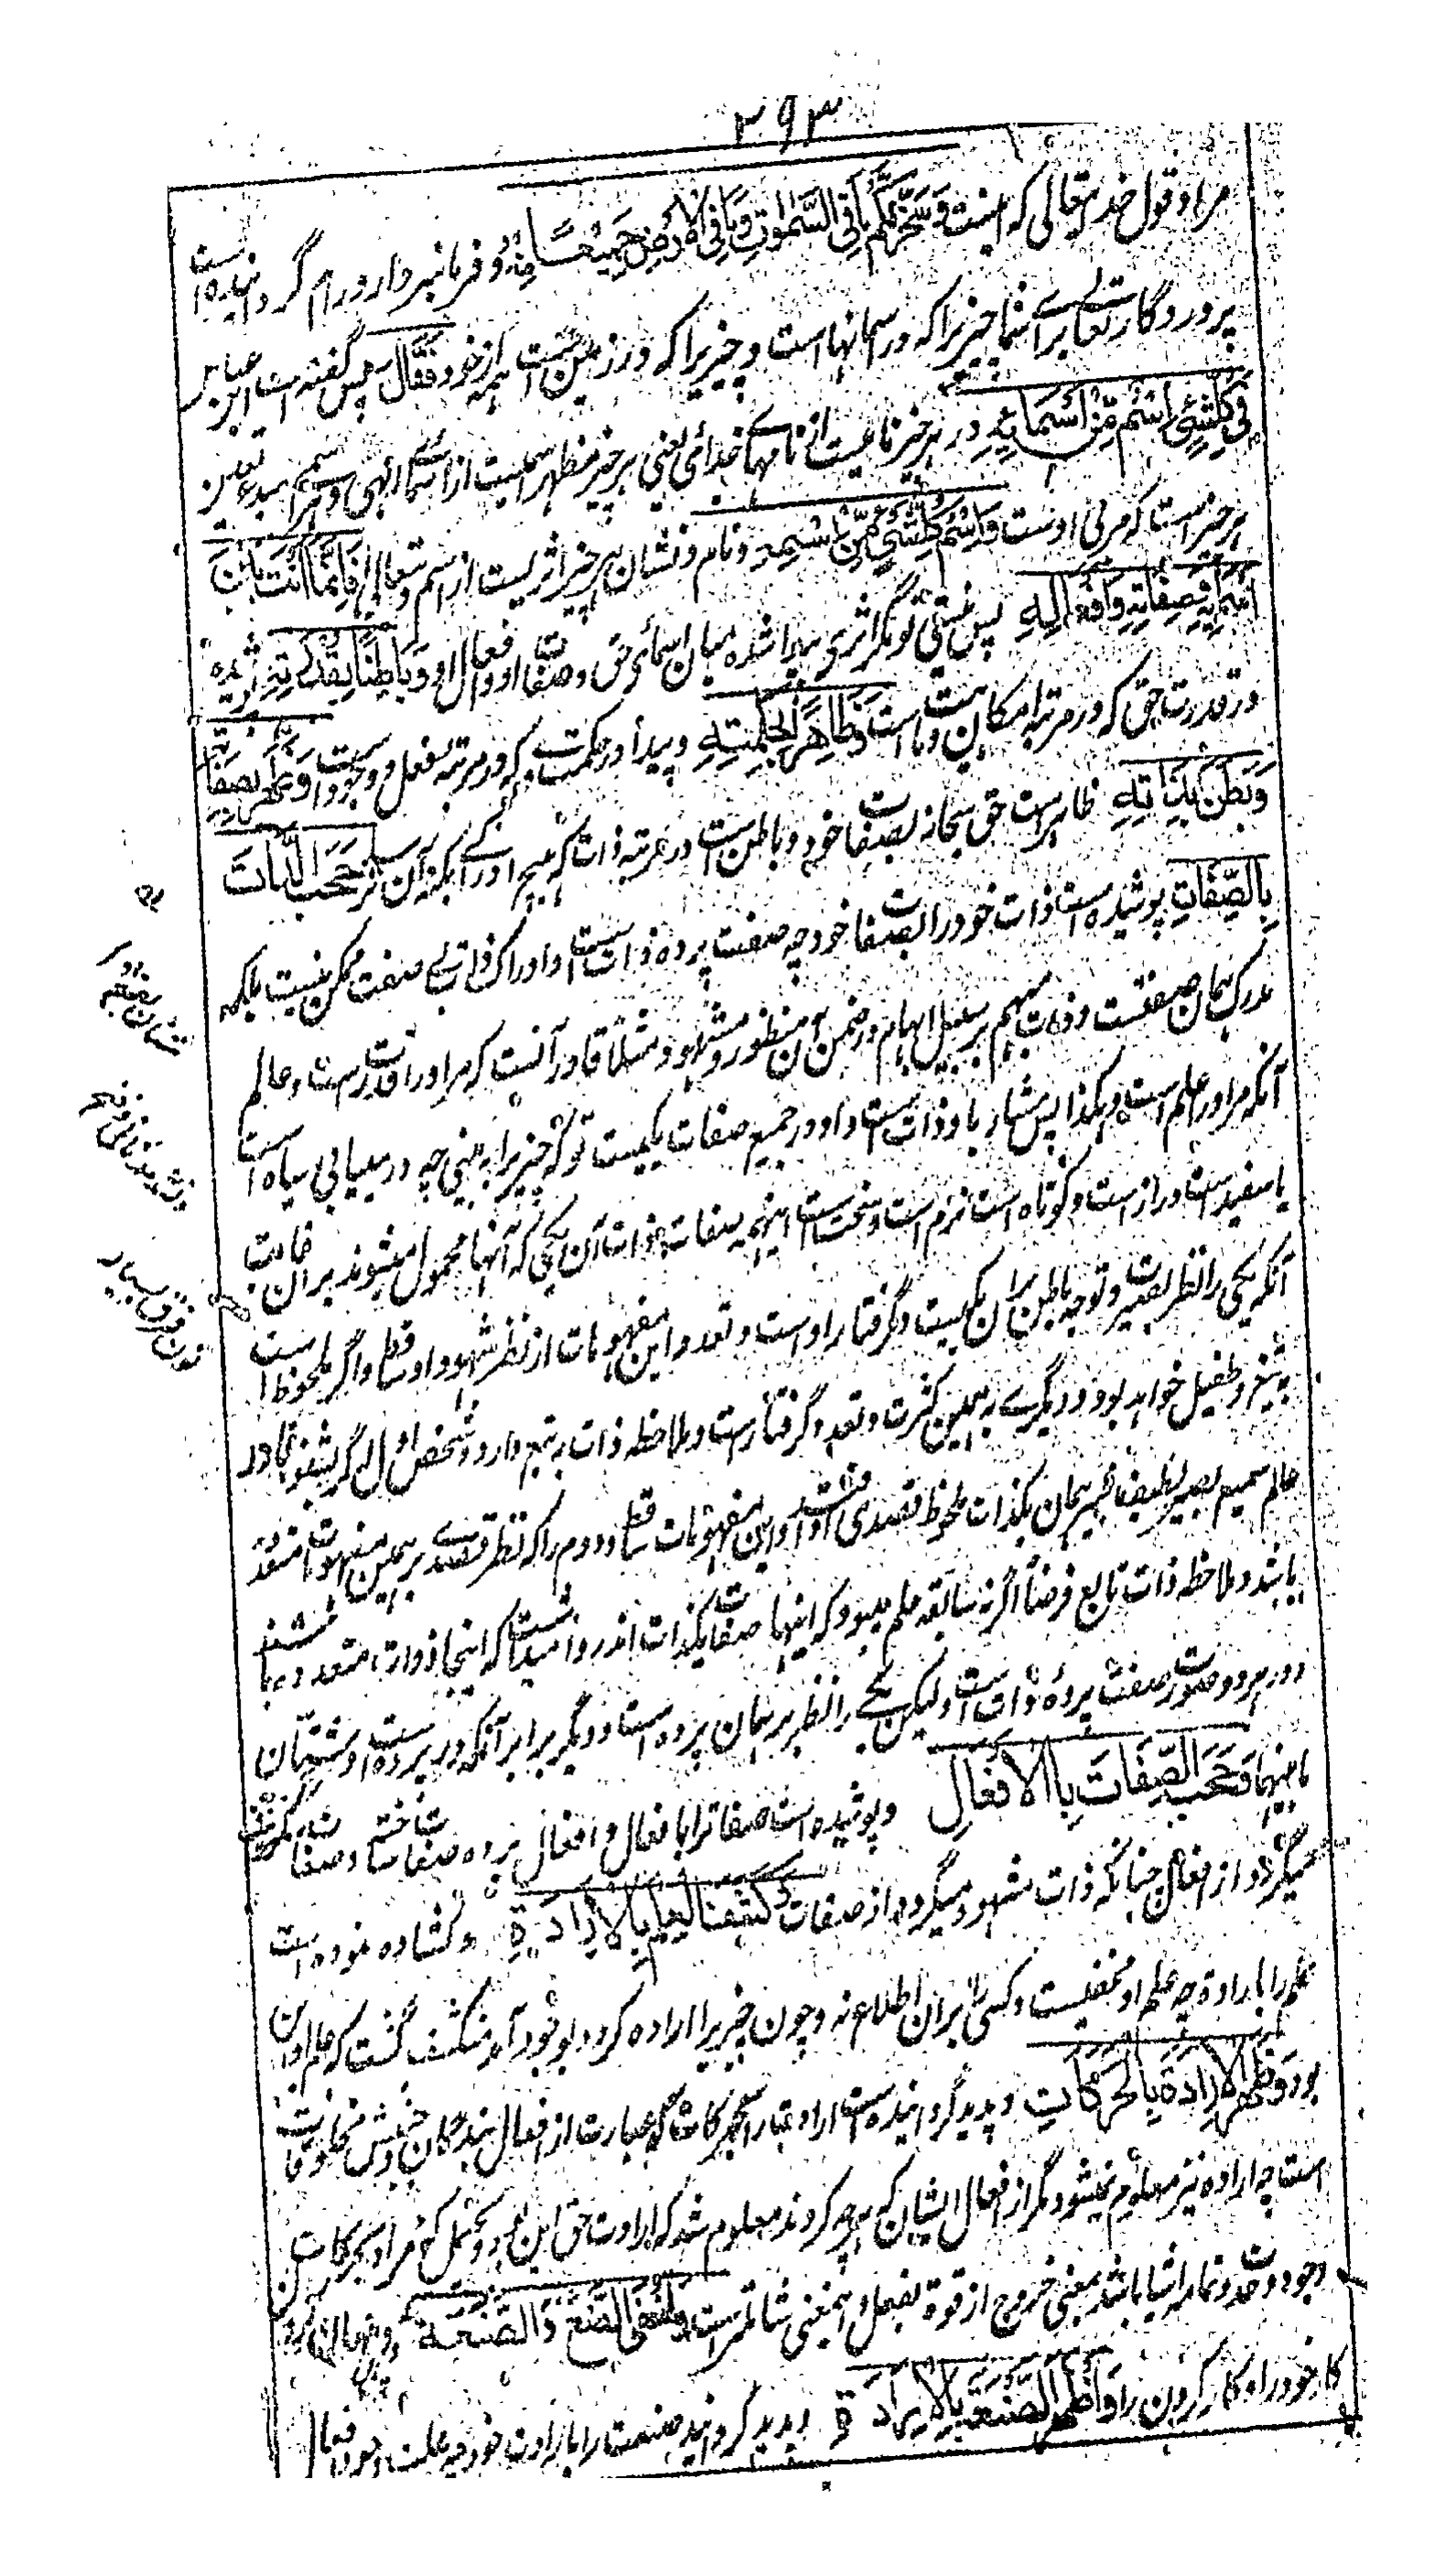 ۳۹۳
مراد قول خدایتعالی که اینست وَسَخَّرَ لَکُم مَا فِی السَّمٰوٰتِ وَمَا فِی الْاَرْضِ جَمِیْعًا مِنْهُ و فرمانبردار و رام گردانیده است
پروردگار تعالی برای شما چیزیرا که در آسمانها است و چیزیرا که در زمین است همه از خود فَقَالَ پس گفته است ابن عباس
فِی کُلِّ شَیْئٍ اِسْمٌ مِّنْ اَسْمَائِهِ در هر چیز نامیست از نامهای خدای یعنی هر چیز مظهر اسمیست از اسمای الهی و هر اسمی مبدء تعین
هر چیز است که مربی اوست وَاسْمُ کُلِّ شَیْئٍ مِّنْ اسْمِهِ و نام و نشان هر چیز اثریست از اسم و تعالی فَاِنَّمَا اَنْتَ بَیْنَ
اَسْمَائِهِ وَصِفَاتِهِ وَاَفْعَالِهِ پس نیستی تو مگر اثری پیدا شده میان اسمای حق و صفات او و افعال او بَاطِنًا بِقُدْرَتِهِ پوشیده
در قدرت حق که در مرتبه امکان است وَظَاهِرًا بِحِکْمَتِهِ و پیدا در حکمت که در مرتبه فعل و وجود است ظَهَرَ بِصِفَاتِهِ
وَبَطَنَ بِذَاتِهِ ظاهر است حق سبحانه بصفات خود و باطن است در مرتبه ذات که هیچ ادراک بکنه آن نرسد حَجَبَ الذَّاتَ
بِالصِّفَاتِ پوشیده است ذات خود را بصفات خود چه صفت پرده ذات است و ادراک ذات بی صفت ممکن نیست بلکه
مدرک همان صفتست و ذات مبهم بر سبیل ابهام در ضمن آن منظور و مشهود و مثلاً قادر آنست که مر او را قدرت است و عالم
آنکه مر او را علم است و هکذا پس مشار باو ذات است و او در جمیع صفات یکیست تو که چیزیرا به بینی چه در میابی سیاه است
یا سفید است دراز است و کوتاه است نرم است و سخت است اینهمه صفات ذات آن یکی که آنها محمول میشوند بران غایت
آنکه یکی را نظر بصیرت و توجه باطن بران یکیست و گرفتار اوست و تعدد این مفهومات از نظر شهود او ساقط و اگر ملحوظ است
به تبع و طفیل خواهد بود و دیگرے به همین کثرت و تعدد گرفتارست و ملاحظه ذات به تبع دارد و شخص اول اگر بشنود قادر
عالم سمیع بصیر لطیف خبیر همان یکذات ملحوظ قصدی او افتد و این مفهومات ساقط و دوم را که نظر قصدے بر همین مفهومات متعدد
باشد و ملاحظه ذات تابع فرضاً اگر نه سابقه علم میبود که اینها صفات یکذات اند روا میداشت که اینجا ذوات متعدد باشند
و در هر دو صورت صفت پرده ذات است ولیکن یکے را نظر بر همان پرده است و دیگر برابر آنکه در پرده است و شتان
ما بینهما وَحَجَبَ الصِّفَاتَ بِالْاَفْعَالِ و پوشیده است صفات را با فعال و افعال پرده صفات ساخته و صفات
میگردد از افعال چنانکه ذات مشهود میگردد از صفات وَکَشَفَ الْعِلْمَ بِالْاِرَادَةِ و کشاده نموده است
علم را باراده چه علم او مخفیست و کسی را بران اطلاع نه و چون چیزیرا اراده کرد و بوجود آمد منکشف گشت که علم او این
بود وَظَهَرَ الْاِرَادَةَ بِالْحَرَکَاتِ و پدید گردانیده است اراده را بحرکات که عبارت از افعال بندگان و جنبش مخلوقات
است چه اراده نیز معلوم نمیشود مگر از افعال ایشان که هر چه کردند معلوم شد که ارادت حق این بود و محتمل که مراد بحرکات
وجود و حدوث تمامه اشیا باشد بمعنی خروج از قوة بفعل و اینمعنی شاملتر است وَاَخْفَی الصُّنْعَ وَالصَّنْعَةَ و پنهان کرد
کار خود را و کار کردن را وَاَظْهَرَ الصَّنْعَةَ بِالْاِرَادَةِ و پدید گردانید صنعت را بارادت خود